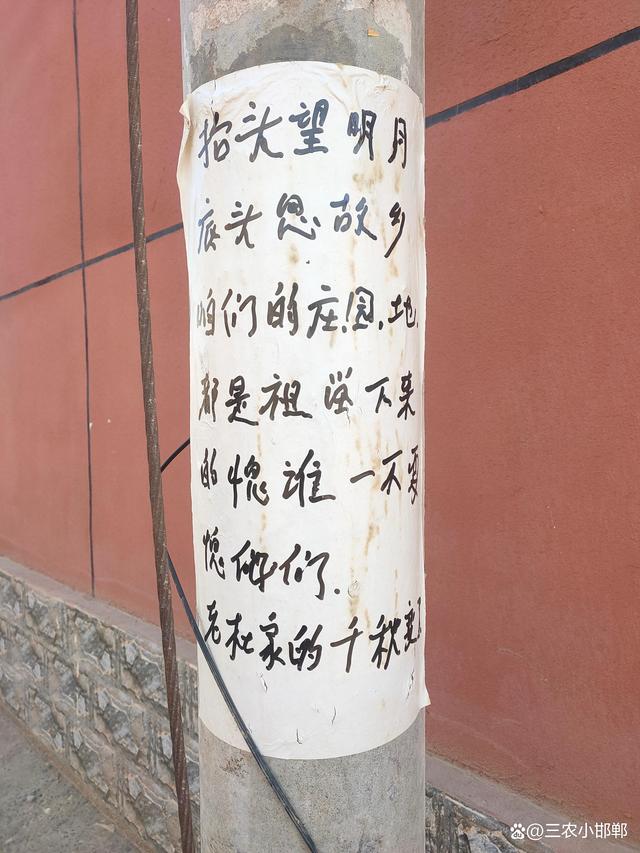 抬头望明月
底头思故乡
咱们的庄园.地.
都是祖留下来
的愧谁一不要
愧他们.
老杜家的千秋
@三农小邯郸